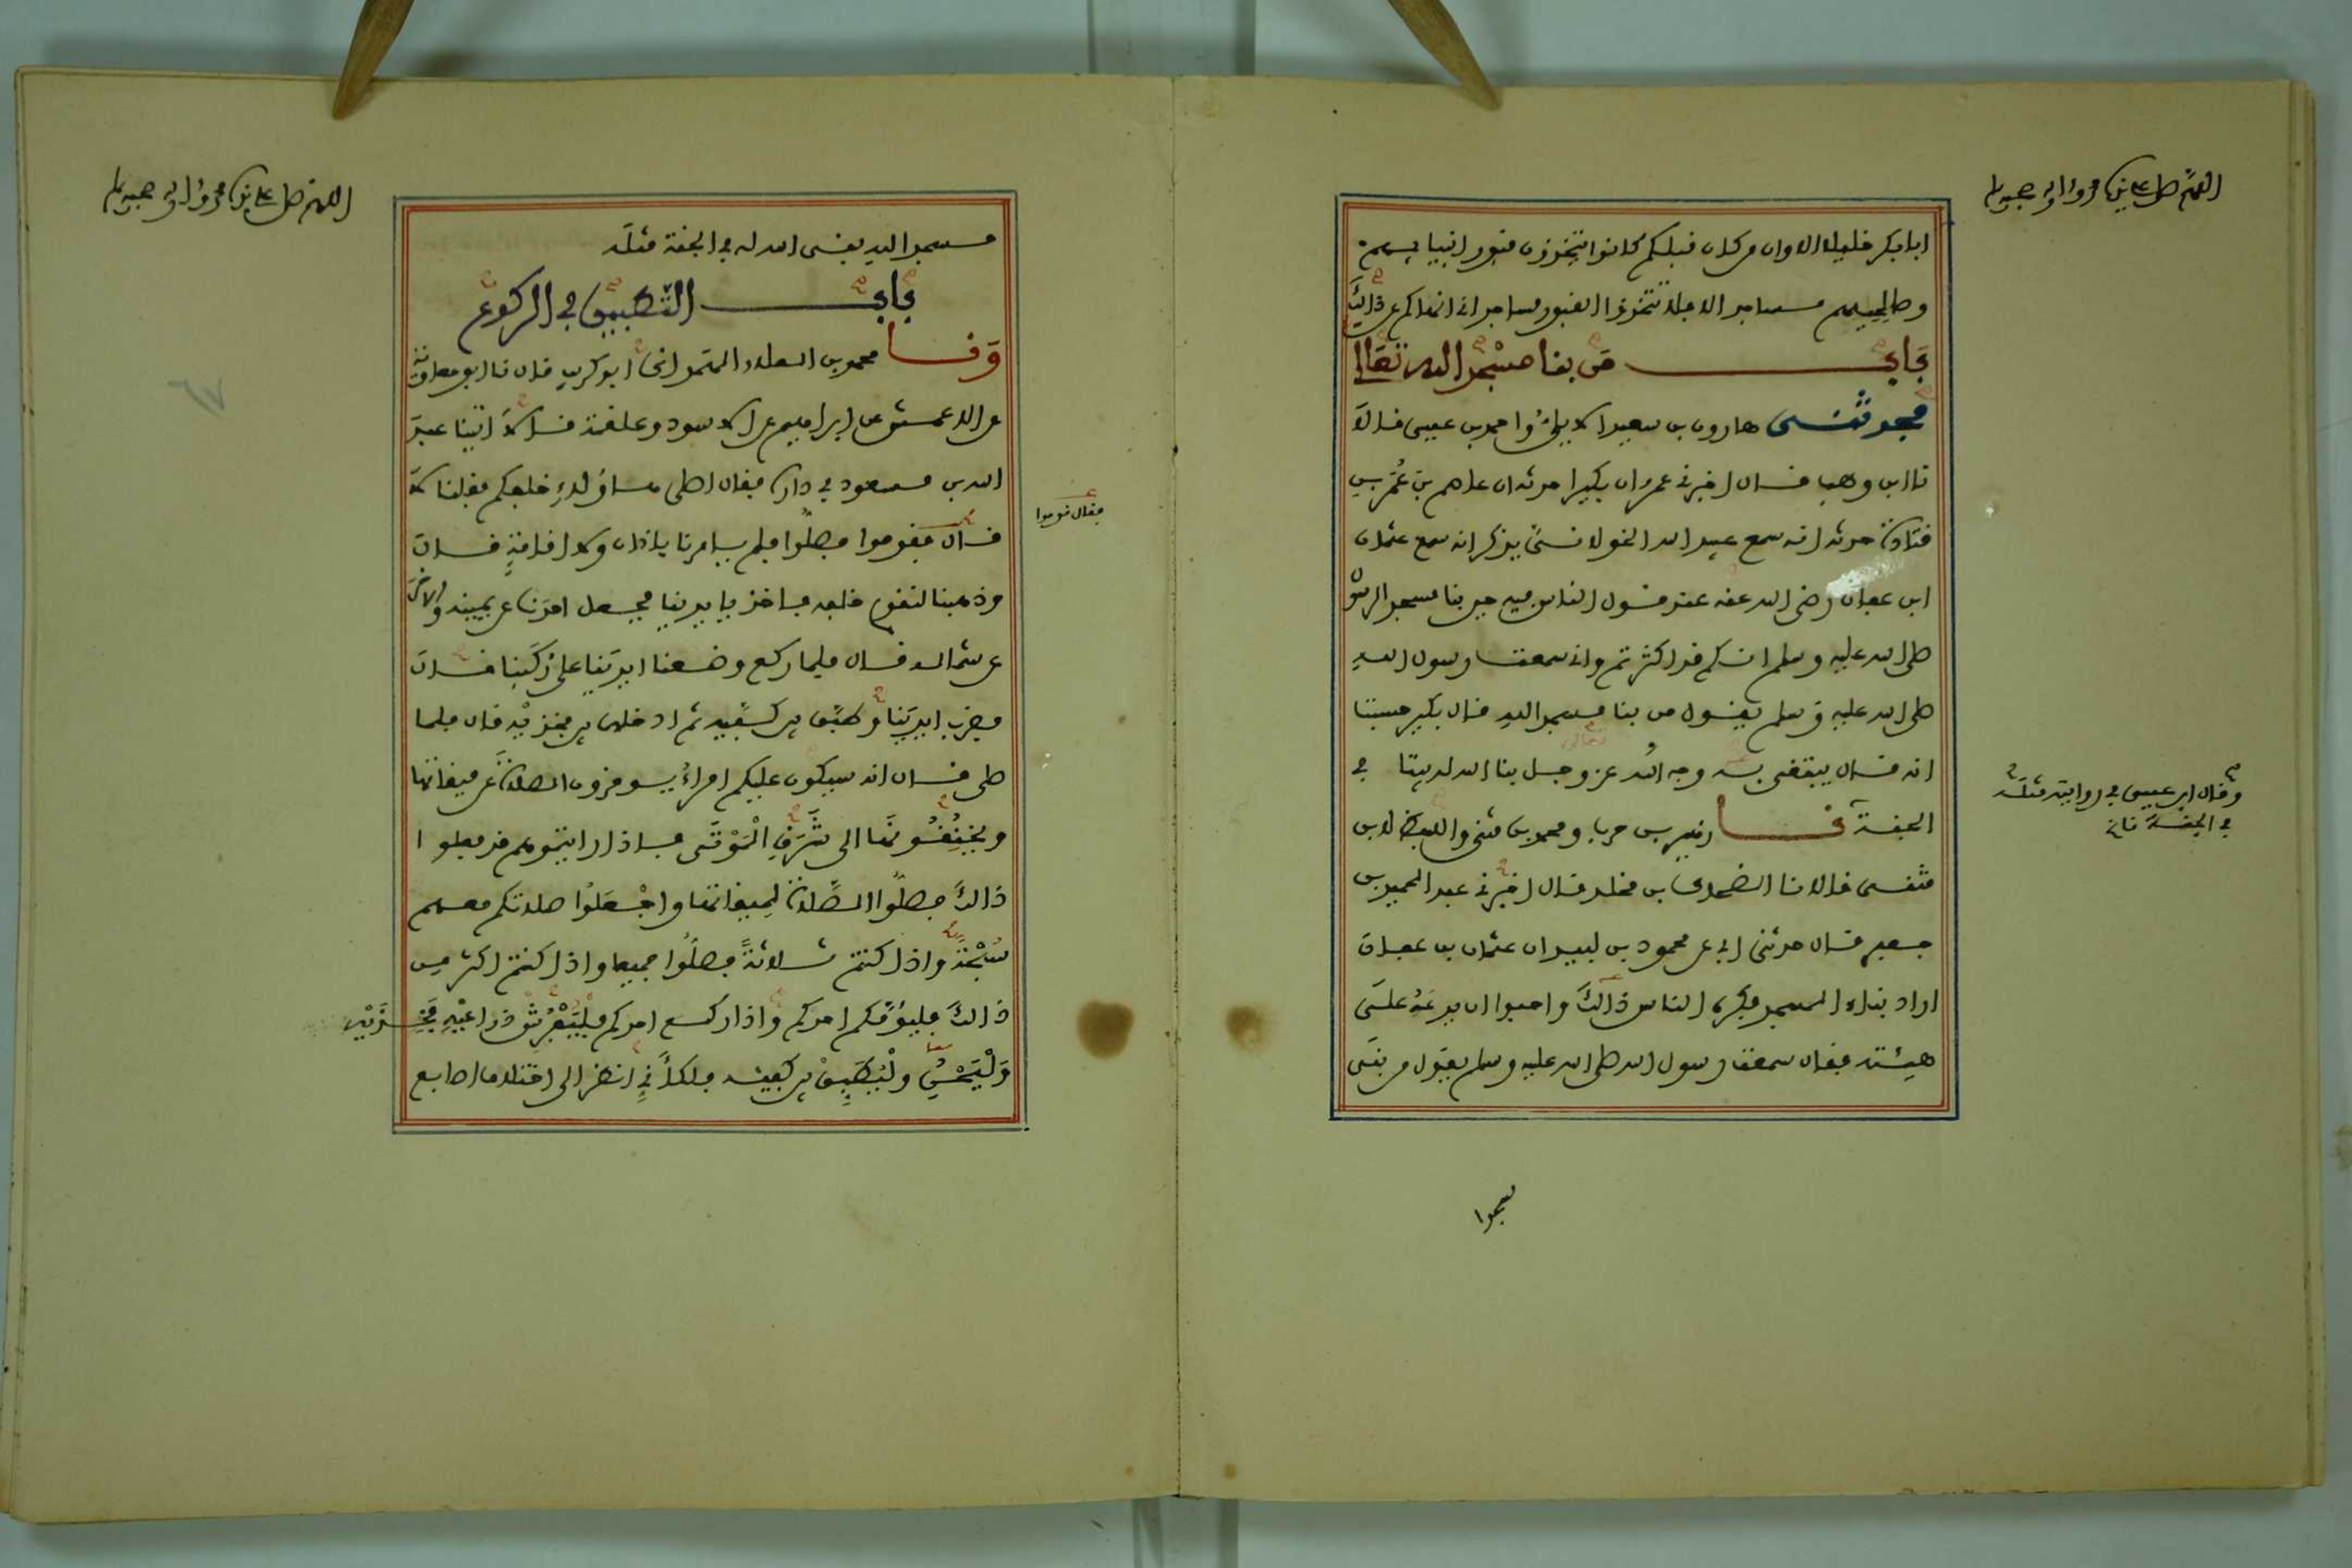 اللهم صل على سيدنا محمد واله وصحبه وسلم
ابابكر خليلا الا وان من كان قبلكم كانوا يتخذون قبور انبيايهم
وصالحيهم مساجد الا فلا تتخذوا القبور مساجد اني انهاكم عن ذالك
باب من بنا مسجدا لله تعالى
حدثني هارون بن سعيد الايلي واحمد بن عيسى قالا
نا ابن وهب قال اخبرني عمرو ان بكيرا حدثه ان عاصم بن عمر بن
قتادة حدثه انه سمع عبيد الله الخولاني يذكر انه سمع عثمان
ابن عفان رضي الله عنه عند قول الناس فيه حين بنا مسجد الرسول
صلى الله عليه وسلم انكم قد اكثرتم واني سمعت رسول الله
صلى الله عليه وسلم يقول من بنا مسجدا لله قال بكير حسبت
انه قال يبتغي به وجه الله عز وجل بنا الله له بيتا في
الجنة نا زهير بن حرب ومحمد بن مثنى واللفظ لابن
مثنى قالا نا الضحاك بن مخلد قال اخبرني عبد الحميد بن
جعفر قال حدثني ابي عن محمود بن لبيد ان عثمان بن عفان
اراد بناء المسجد فكره الناس ذالك واحبوا ان يدعه على
هيئته فقال سمعت رسول الله صلى الله عليه وسلم يقول من بنى
وقال ابن عيسى في روايته مثله
في الجنة
اللهم صل على سيدنا محمد واله وصحبه وسلم
مسجدا لله بنى الله له في الجنة مثله
باب التطبيق في الركوع
ونا محمد بن العلاء الهمداني ابو كريب قال نا ابو معاوية
عن الاعمش عن ابراهيم عن الاسود وعلقمة قالا اتينا عبد
الله بن مسعود في داره فقال اصلى هاؤلاء خلفكم فقلنا لا
قال فقوموا فصلوا فلم يامرنا باذان ولا اقامة قال
وذهبنا لنقوم خلفه فاخذ بايدينا فجعل احدنا عن يمينه والاخر
عن شماله قال فلما ركع وضعنا ايدينا على ركبنا قال
فضرب ايدينا وطبق بين كفيه ثم ادخلهما بين فخذيه قال فلما
صلى قال انه سيكون عليكم امراء يوخرون الصلاة عن ميقاتها
ويخنقونها الى شرق الموتى فاذا رايتموهم قد فعلوا
ذالك فصلوا الصلاة لميقاتها واجعلوا صلاتكم معهم
سبحة واذا كنتم ثلاثة فصلوا جميعا واذا كنتم اكثر من
ذالك فليؤمكم احدكم واذا ركع احدكم فليفرش ذراعيه فخذيه
وليحن وليطبق بين كفيه فلكاني انظر الى اختلاف اصابع
فقال قوموا